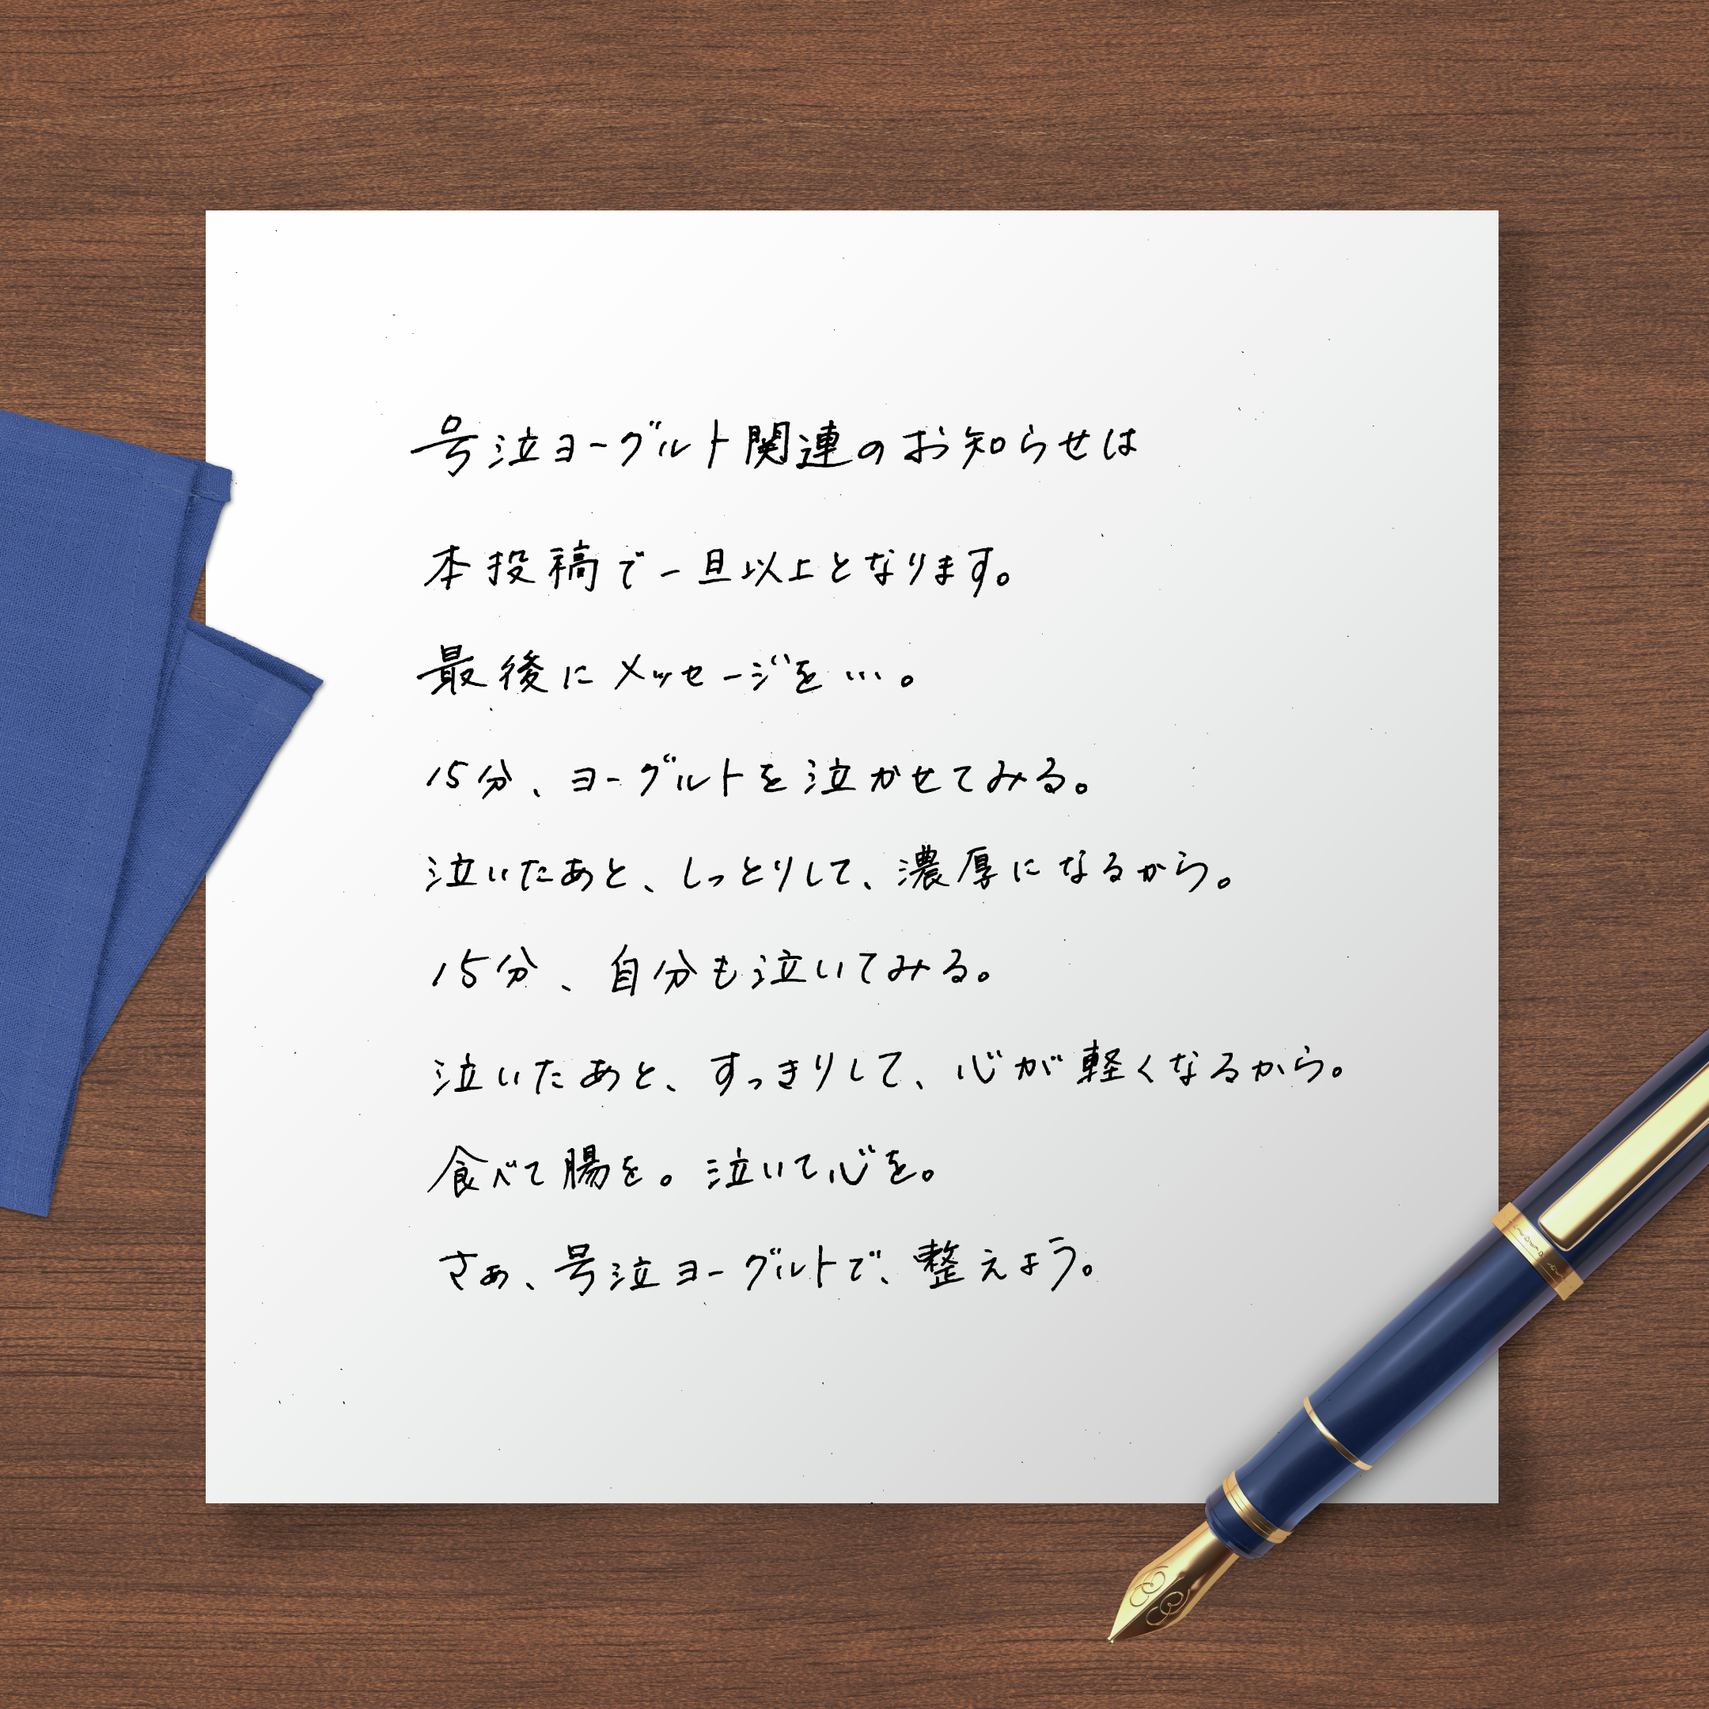 号泣ヨーグルト関連のお知らせは
本投稿で一旦以上となります。
最後にメッセージを…。
15分、ヨーグルトを泣かせてみる。
泣いたあと、しっとりして、濃厚になるから。
15分、自分も泣いてみる。
泣いたあと、すっきりして、心が軽くなるから。
食べて腸を。泣いて心を。
さぁ、号泣ヨーグルトで、整えよう。